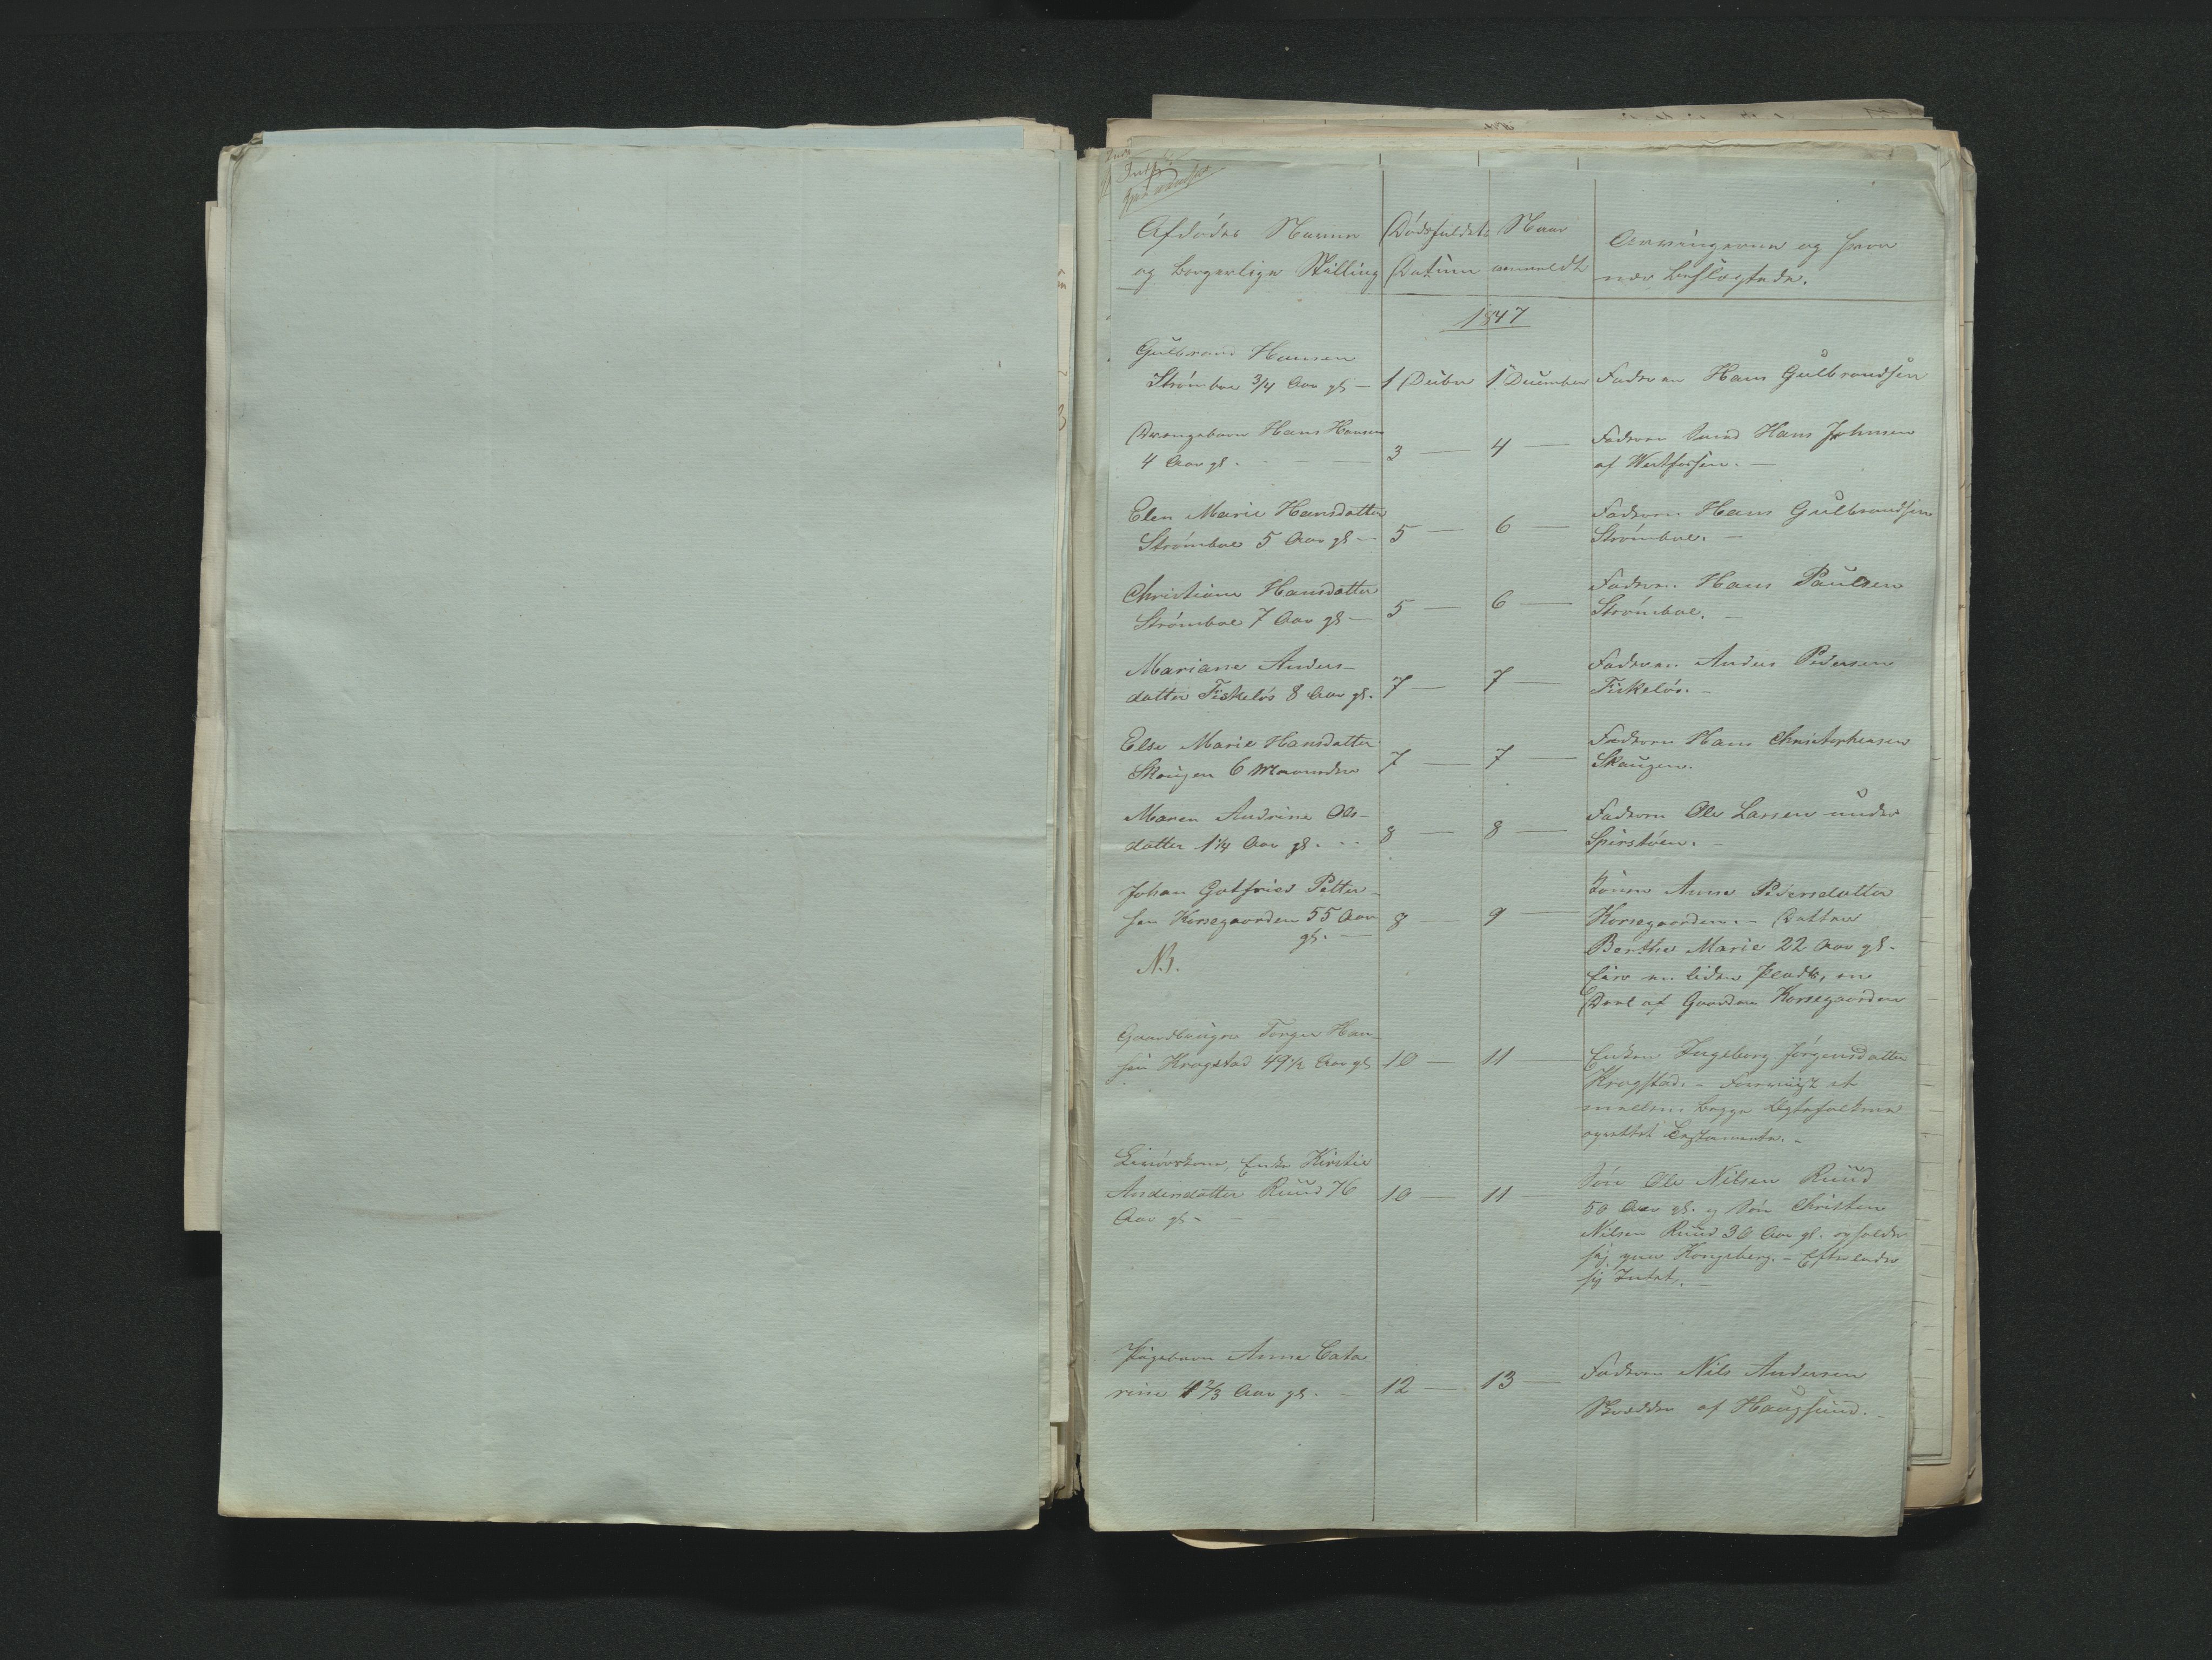 Afdødes Navne Dødsfaldets Naar Arvingerne og hvor
og borgerlige Stilling Datum anmeldt nær beslægtede.
1847
Gulbrand Hansen
Strømboe 3/4 Aar gl. — 1 Decbr 1 December Faderen Hans Gulbrandsen
Drengebarn Hans Hansen
4 Aar gl. 3 — 4 — Faderen Hans Johnsen
af Westfossen. —
Elen Marie Hansdatter
Strømboe 5 Aar gl — 5 — 6 — Faderen Hans Gulbrandsen
Strømboe. —
Christiane Hansdatter
Strømboe 7 Aar gl — 5 — 6 — Faderen Hans Paulsen
Strømboe. —
Mariane Anders-
datter Fiskeløs 8 Aar gl. 7 — 7 — Faderen Anders Pedersen
Fiskeløs. —
Else Marie Hansdatter
Skougen 6 Maaneder 7 — 7 — Faderen Hans Christophersen
Skaugen.
Maren Andrine Ols-
datter 1 1/4 Aar gl. 8 — 8 — Faderen Ole Larsen under
Spirstøen. —
Johan Gotfried Petter-
sen Korsegaarden 55 Aar
gl. — 8 — 9 —
NB.
Konen Anne Pedersdatter
Korsegaarden. — Datter
Berthe Marie 22 Aar gl.
Eier en liden Plads, en
Deel af Gaarden Korsegaarden
Gaardbruger Torger Han-
sen Krogstad 49 1/2 Aar gl 10 — 11 —
Enken Ingeborg Jørgensdatter
Krogstad. — Forevist et
mellem begge Ægtefolkene
oprettet Testamente. —
Enke Kirstie
Andersdatter Ruud 76
Aar gl — 10 — 11 —
Søn Ole Nilsen Ruud
50 Aar gl. og Søn Christen
Nilsen Ruud 30 Aar gl. opholder
sig paa Kongsberg. — Efterlader
sig Intet. —
Pigebarn Anne Cata
rine 4 2/3 Aar gl. 12 — 13 —
Faderen Nils Andersen
af Haugsund. —